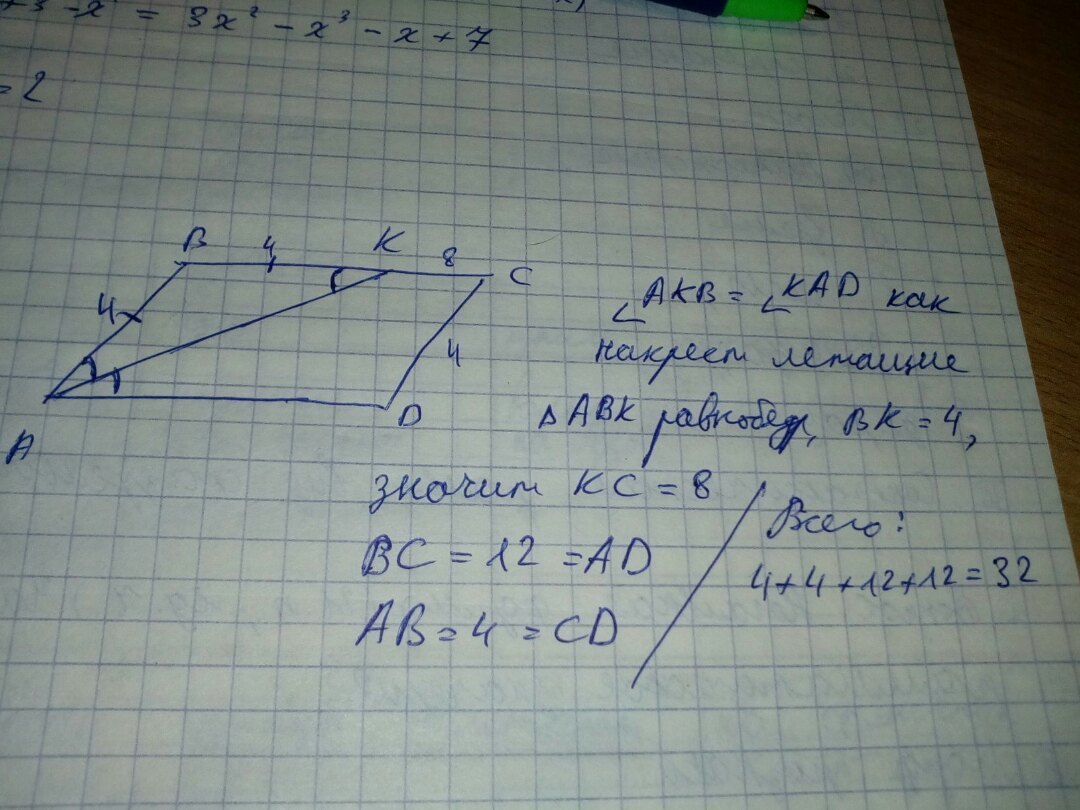 +3 - x = 3x² - x³ - x + 7
= 2
B 4 K 8 C
4
4
A D
∠AKB = ∠KAD как
накрест лежащие
△ABK равнобедр, BK = 4,
значит KC = 8
BC = 12 = AD
AB = 4 = CD
Всего:
4+4+12+12=32